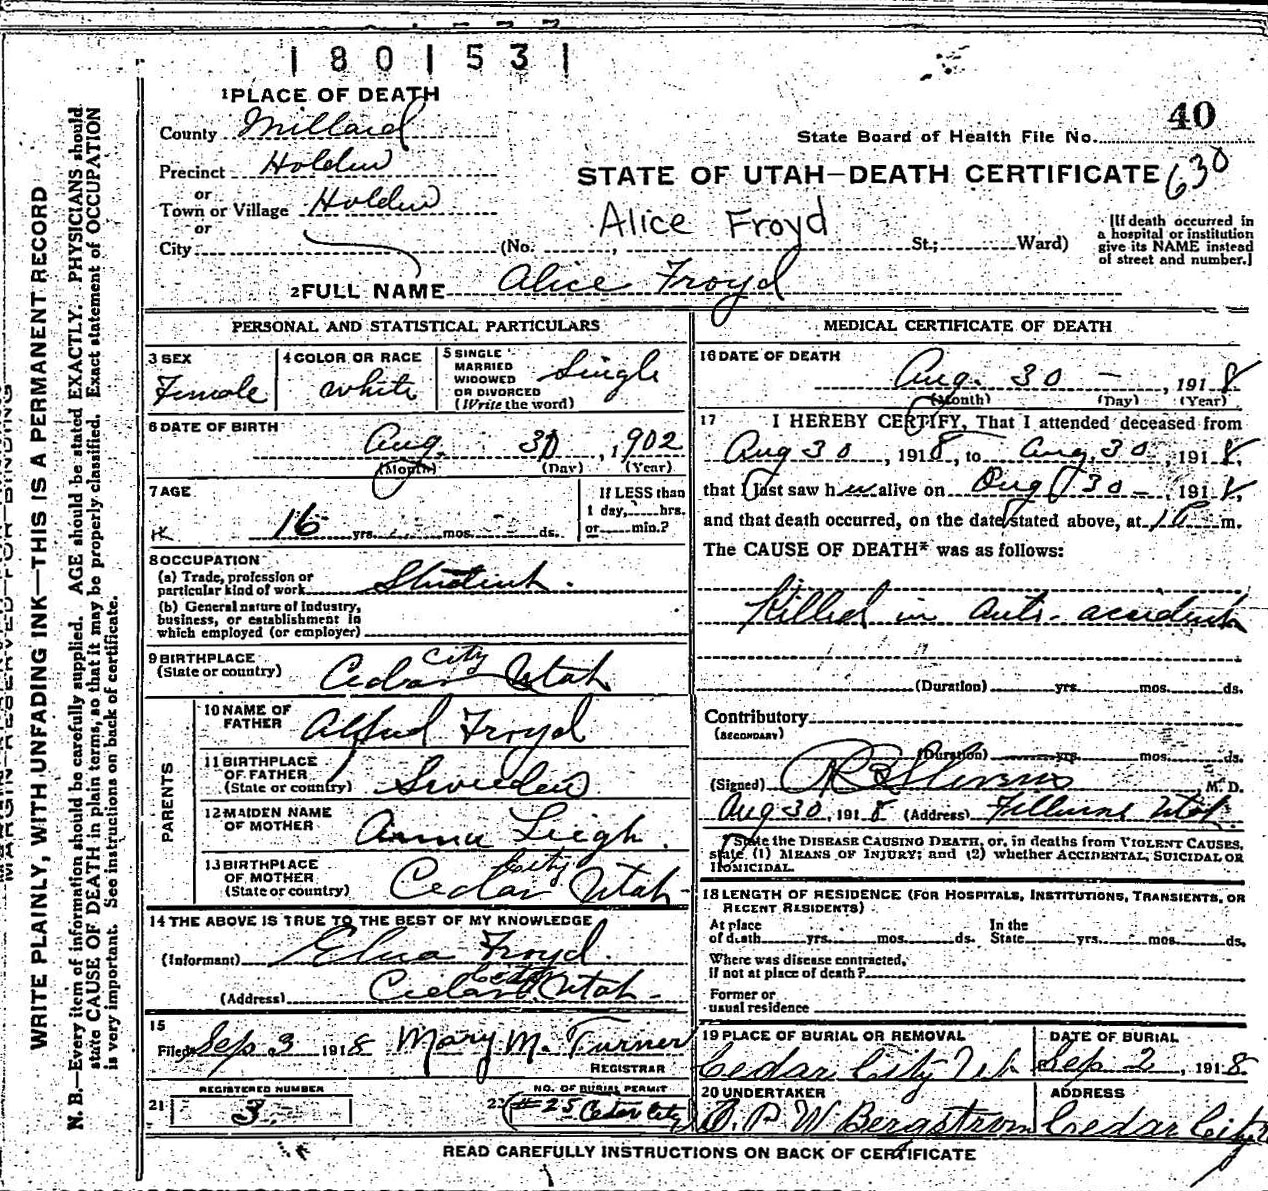 1801531
1 PLACE OF DEATH
County Millard
State Board of Health File No. 40
Precinct Holden
STATE OF UTAH—DEATH CERTIFICATE 630
or
Town or Village Holden
or
City (No. , St.; Ward)
Alice Froyd
[If death occurred in
a hospital or institution
give its NAME instead
of street and number.]
2 FULL NAME Alice Froyd
PERSONAL AND STATISTICAL PARTICULARS
3 SEX
Female
4 COLOR OR RACE
White
5 SINGLE
MARRIED
WIDOWED
OR DIVORCED
(Write the word)
Single
6 DATE OF BIRTH
Aug. 30, 1902
(Month) (Day) (Year)
7 AGE
16 yrs. mos. ds.
If LESS than
1 day, hrs.
or min.?
8 OCCUPATION
(a) Trade, profession or
particular kind of work Student.
(b) General nature of industry,
business, or establishment in
which employed (or employer)
9 BIRTHPLACE
(State or country) Cedar City Utah
PARENTS
10 NAME OF
FATHER Alfred Froyd
11 BIRTHPLACE
OF FATHER
(State or country) Sweeden
12 MAIDEN NAME
OF MOTHER Anna Leigh.
13 BIRTHPLACE
OF MOTHER
(State or country) Cedar City Utah
14 THE ABOVE IS TRUE TO THE BEST OF MY KNOWLEDGE
(Informant) Froyd.
(Address) Cedar City Utah
15
Filed Sep 3 1918 Mary M. Turner
REGISTRAR
REGISTERED NUMBER
21 3.
NO. OF BURIAL PERMIT
22 #25 Cedar City
MEDICAL CERTIFICATE OF DEATH
16 DATE OF DEATH
Aug. 30 – , 1918
(Month) (Day) (Year)
17 I HEREBY CERTIFY, That I attended deceased from
Aug 30, 1918, to Aug. 30, 1918.
that I last saw her alive on Aug 30 – , 191
and that death occurred, on the date stated above, at 1 P m.
The CAUSE OF DEATH* was as follows:
Killed in auto accident
(Duration) yrs. mos. ds.
Contributory
(SECONDARY)
(Duration) yrs. mos. ds.
(Signed) Stevens M. D.
Aug 30, 1918 (Address) Fillmore Utah.
*State the DISEASE CAUSING DEATH, or, in deaths from VIOLENT CAUSES,
state (1) MEANS OF INJURY; and (2) whether ACCIDENTAL, SUICIDAL OR
HOMICIDAL.
18 LENGTH OF RESIDENCE (FOR HOSPITALS, INSTITUTIONS, TRANSIENTS, OR
RECENT RESIDENTS)
At place
of death yrs. mos. ds.
In the
State yrs. mos. ds.
Where was disease contracted,
if not at place of death?
Former or
usual residence
19 PLACE OF BURIAL OR REMOVAL
Cedar City Ut
DATE OF BURIAL
Sep 2, 1918
20 UNDERTAKER
P. W Bergstrom
ADDRESS
Cedar City
READ CAREFULLY INSTRUCTIONS ON BACK OF CERTIFICATE
MARGIN RESERVED FOR BINDING
WRITE PLAINLY, WITH UNFADING INK—THIS IS A PERMANENT RECORD
N. B.—Every item of information should be carefully supplied. AGE should be stated EXACTLY. PHYSICIANS should
state CAUSE OF DEATH in plain terms, so that it may be properly classified. Exact statement of OCCUPATION
is very important. See instructions on back of certificate.